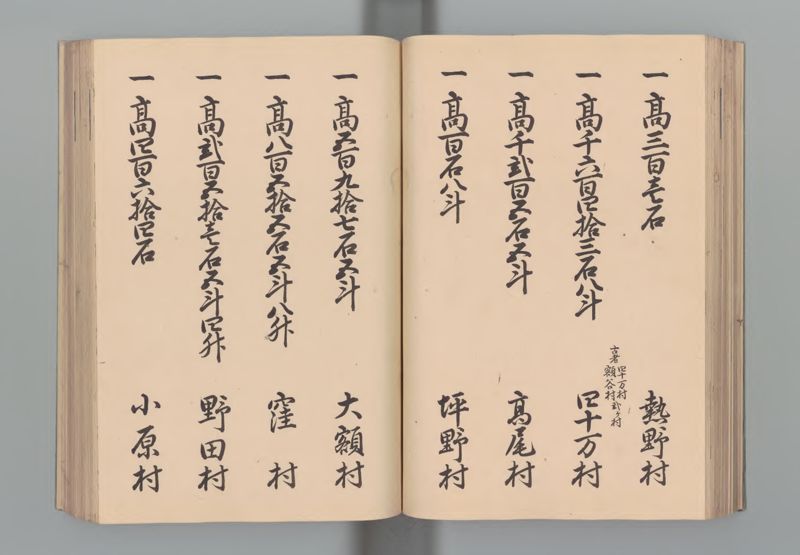 一高三百壱石 熱野村
古者四十万村額谷村弐ケ村
一高千六百四拾三石八斗 四十万村
一高千弐百五石五斗 高尾村
一高百石八斗 坪野村
一高五百九拾七石五斗 大額村
一高八百五拾五石五斗八升 窪村
一高弐百五拾壱石五斗四升 野田村
一高四百六拾四石 小原村